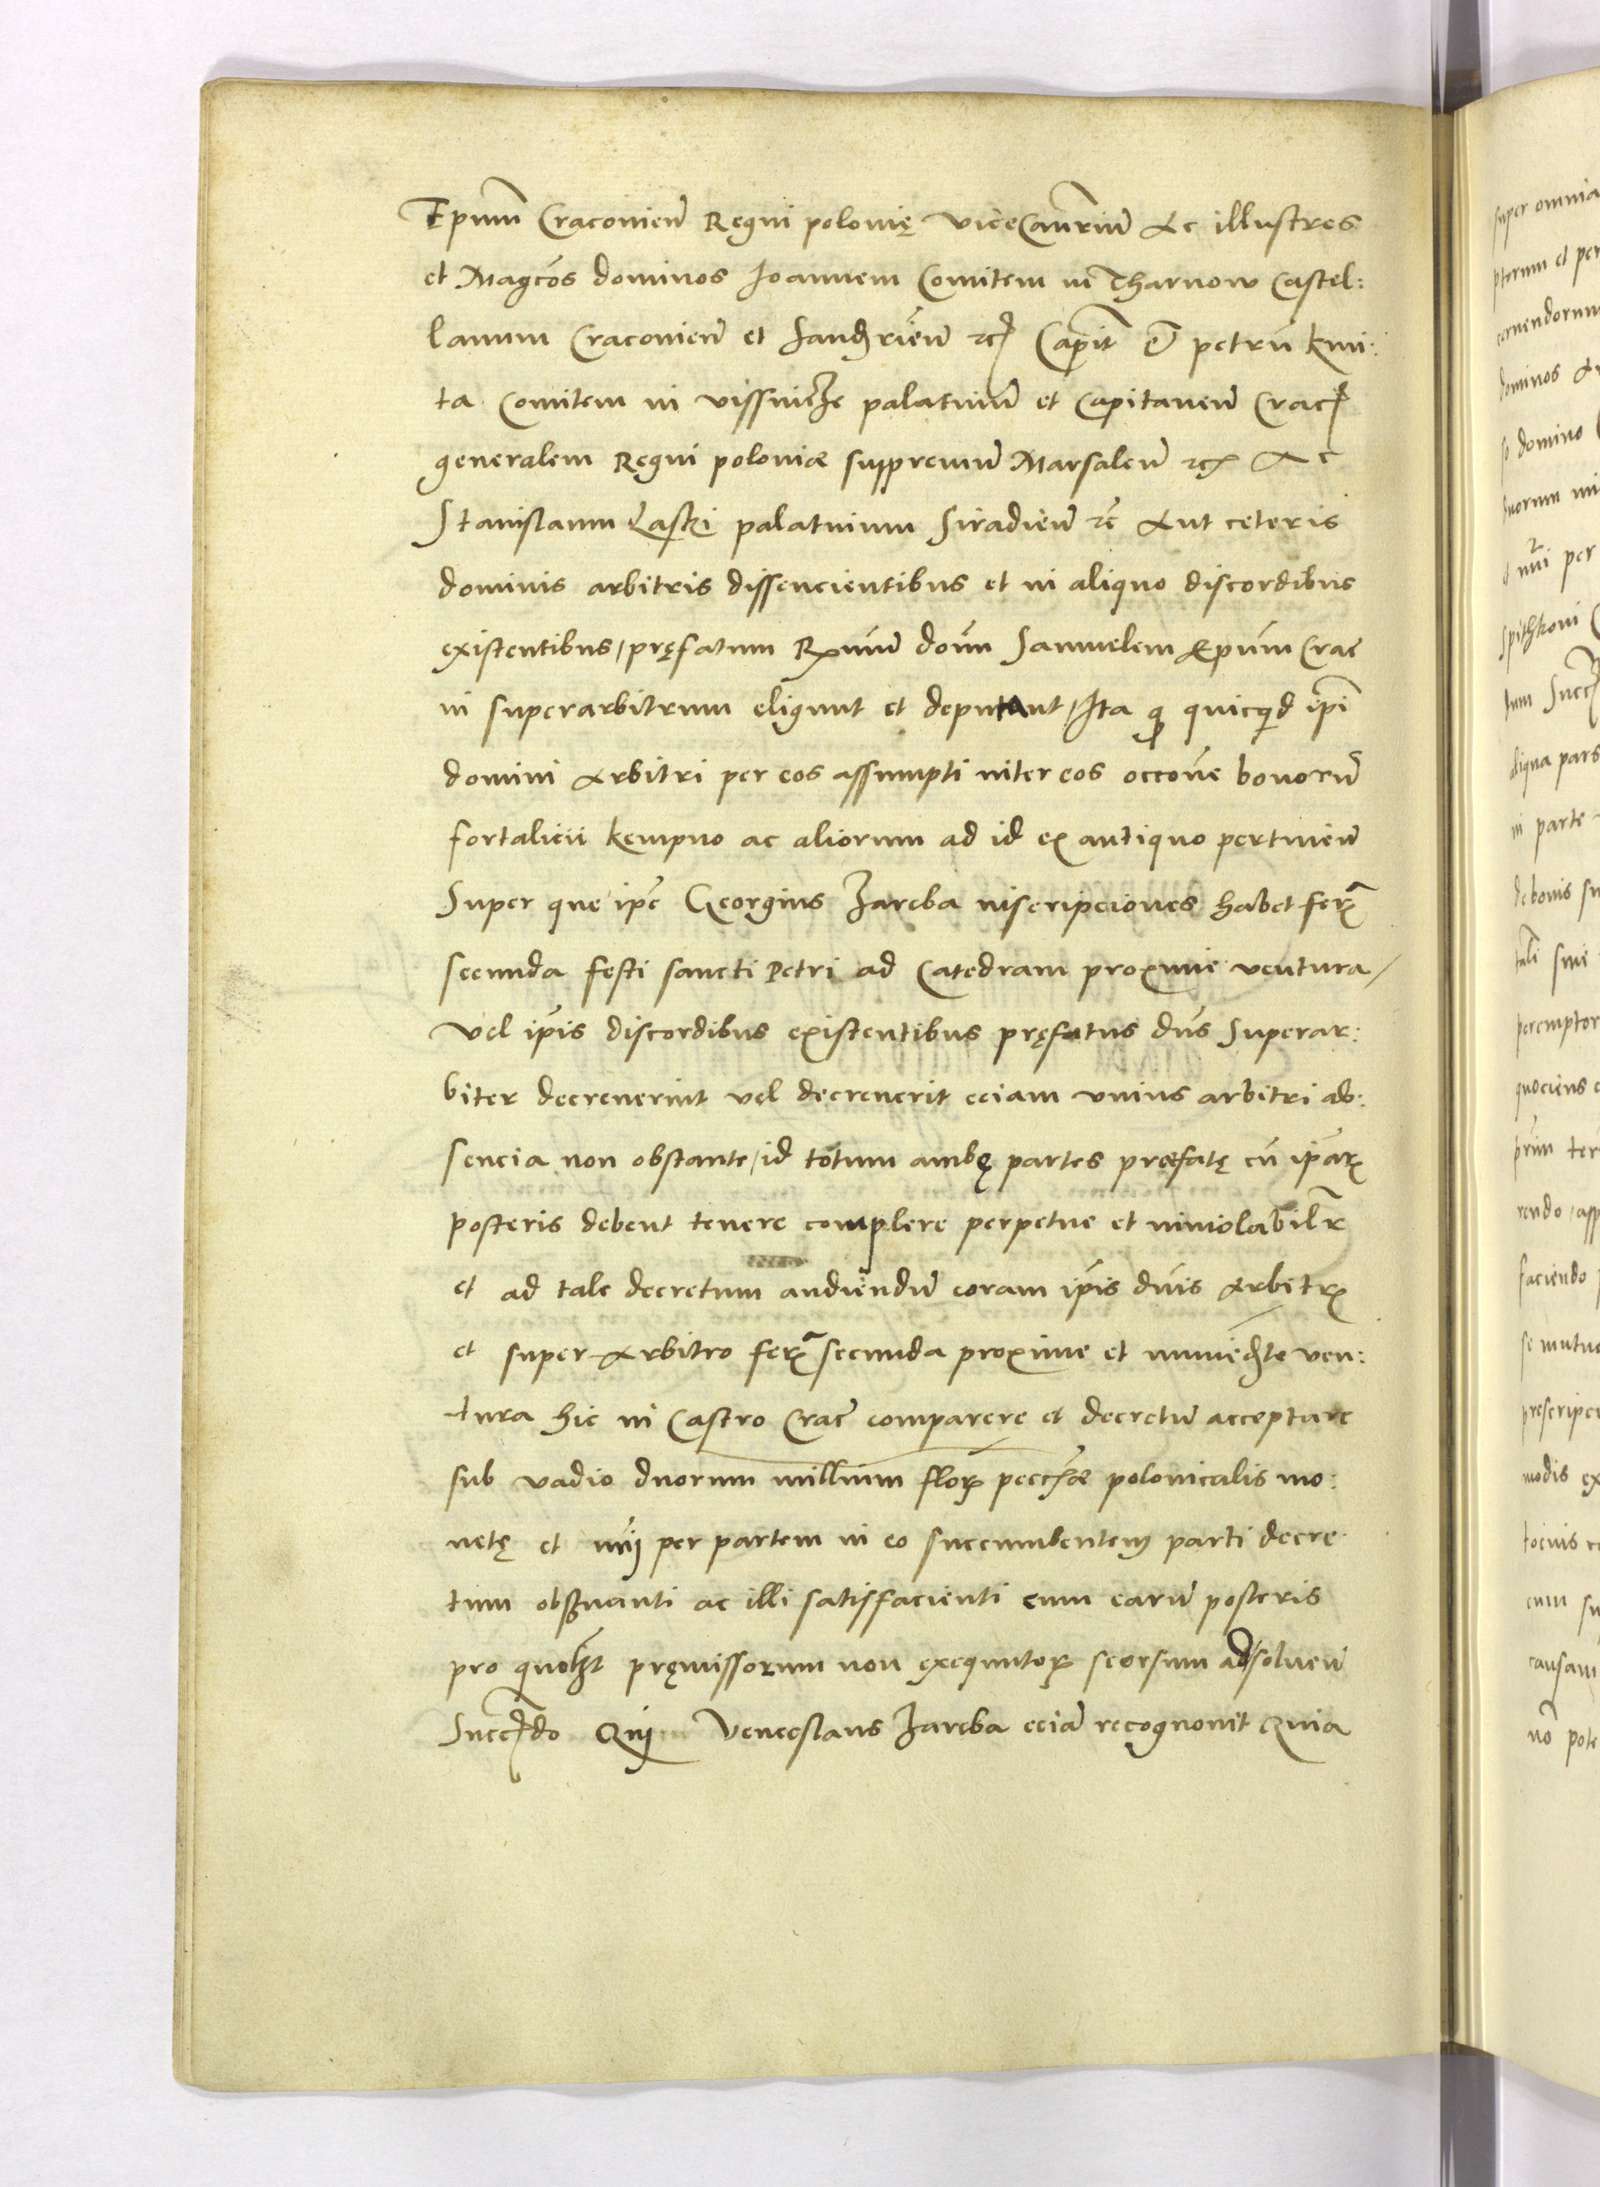 Epum̃ Cracovien̄ Regni polonię viceCanr̃ium̃ Ac illustres
et Magc̃os dominos Ioannem Comitem in Tharnow Castel:
lanum Cracovien̄ et Sandr̃ien̄ zc̃ Capit̃ petrũ kmi:
ta Comitem in vissnicze palatinum̃ et Capitaneũ Crac̃
generalem Regni poloniæ suppremum̃ Marsalcum̃ zc̃ Ac
Stanislaum Laszki palatinum Siradien̄ zc̃ Aut ceteris
dominis arbitris dissencientibus et in aliquo discordibus
existentibus, pręfatum Rx̃mum dom̃ Samuelem Epum̃ Crac̃
in superarbitrum eligunt et deputant, Ita q quicqd ipi
domini Arbitri per eos assumpti inter eos occoñe bonorũ
fortalicii kempno ac aliorum ad id ex antiquo pertinen̄
Super que ipe Georgius Zareba inscripciones habet ferᵃ
secunda festi sancti Petri ad Catedram proxime ventura,
vel ipis discordibus existentibus pręfatus dñs Superar:
biter decreuerint vel decreuerit eciam vnius arbitri ab:
sencia non obstante, id totum ambę partes præfatę cũ ipar
posteris debent tenere complere perpetue et inuiolabilr
et ad tale decretum audiendũ coram ipis dñis Arbitr
et super Arbitro ferᵃ secunda proxime et immediate ven:
tura hic in Castro Crac̃ comparere et decretũ accepture
sub vadio duorum millium flor pecchæ polonicalis mo:
netę et per partem in eo succumbentem parti decre
tum obsuanti ac illi satisfacienti cum earũ posteris
pro quolibet pręmissorum non exequutor seorsum absoluen̄
Succ̃do Qui Venceslaus Zareba eciã recognouit Quia
super omnia
dominos
domino
per
aliqua pars
in parte
de bonis
sine
peremptor
quociens
faciendo
se mutuo
modis
causam
nõ pote